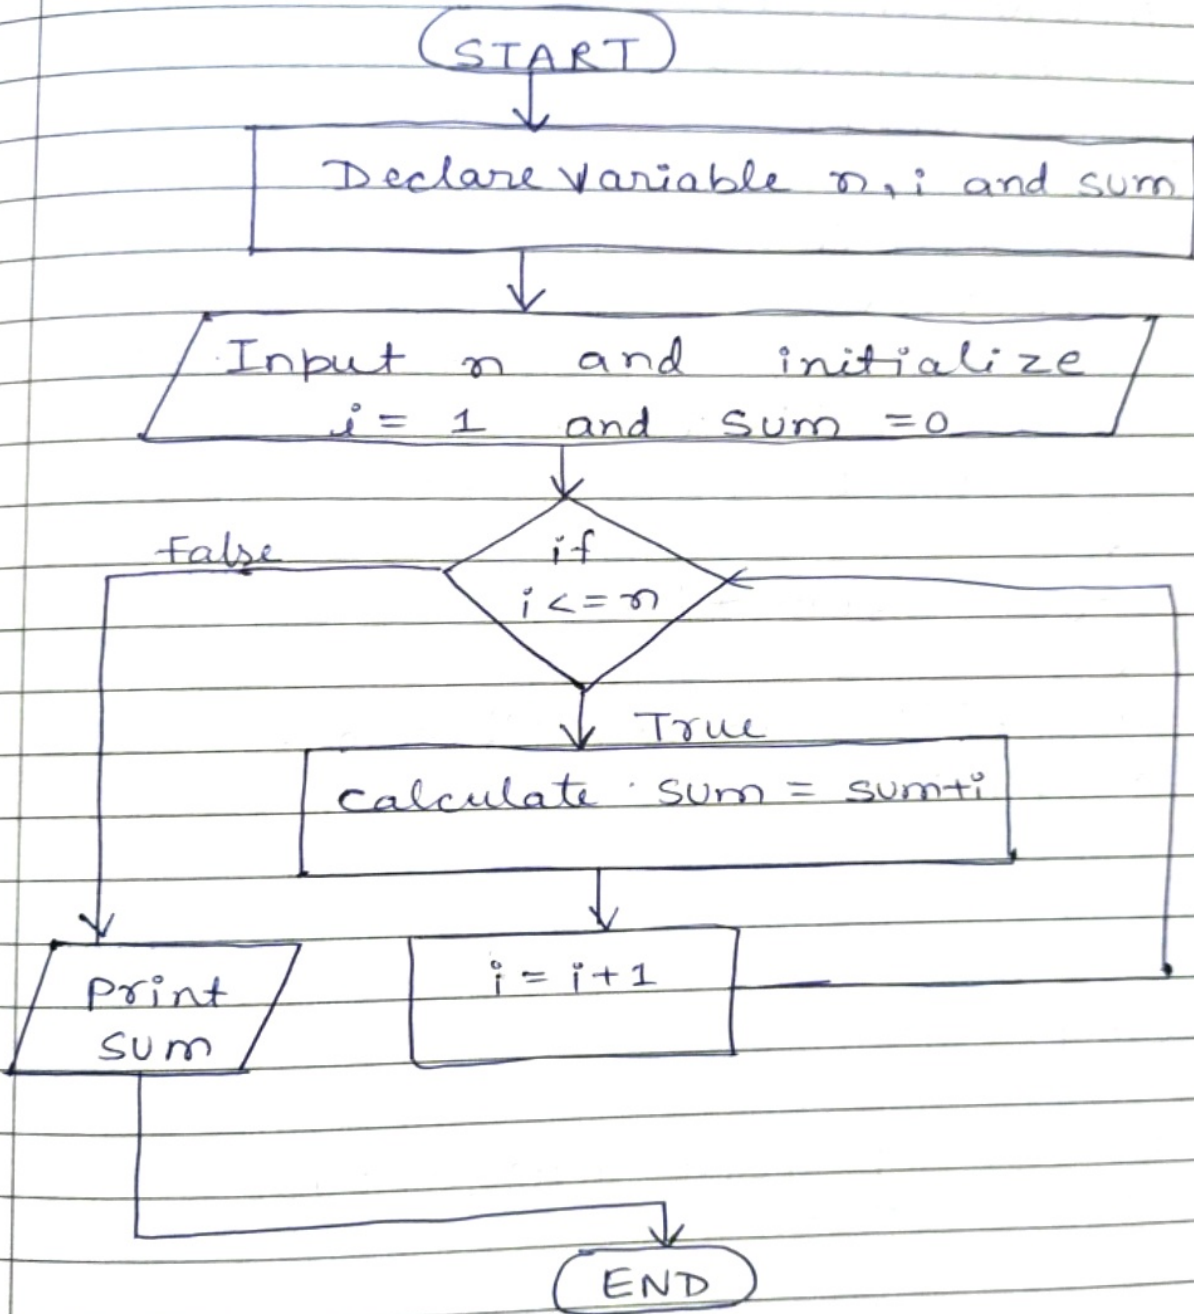 START
Declare variable n, i and sum
Input n and initialize
i = 1 and sum = 0
if
i <= n
False
True
calculate sum = sum+i
i = i+1
print
sum
END